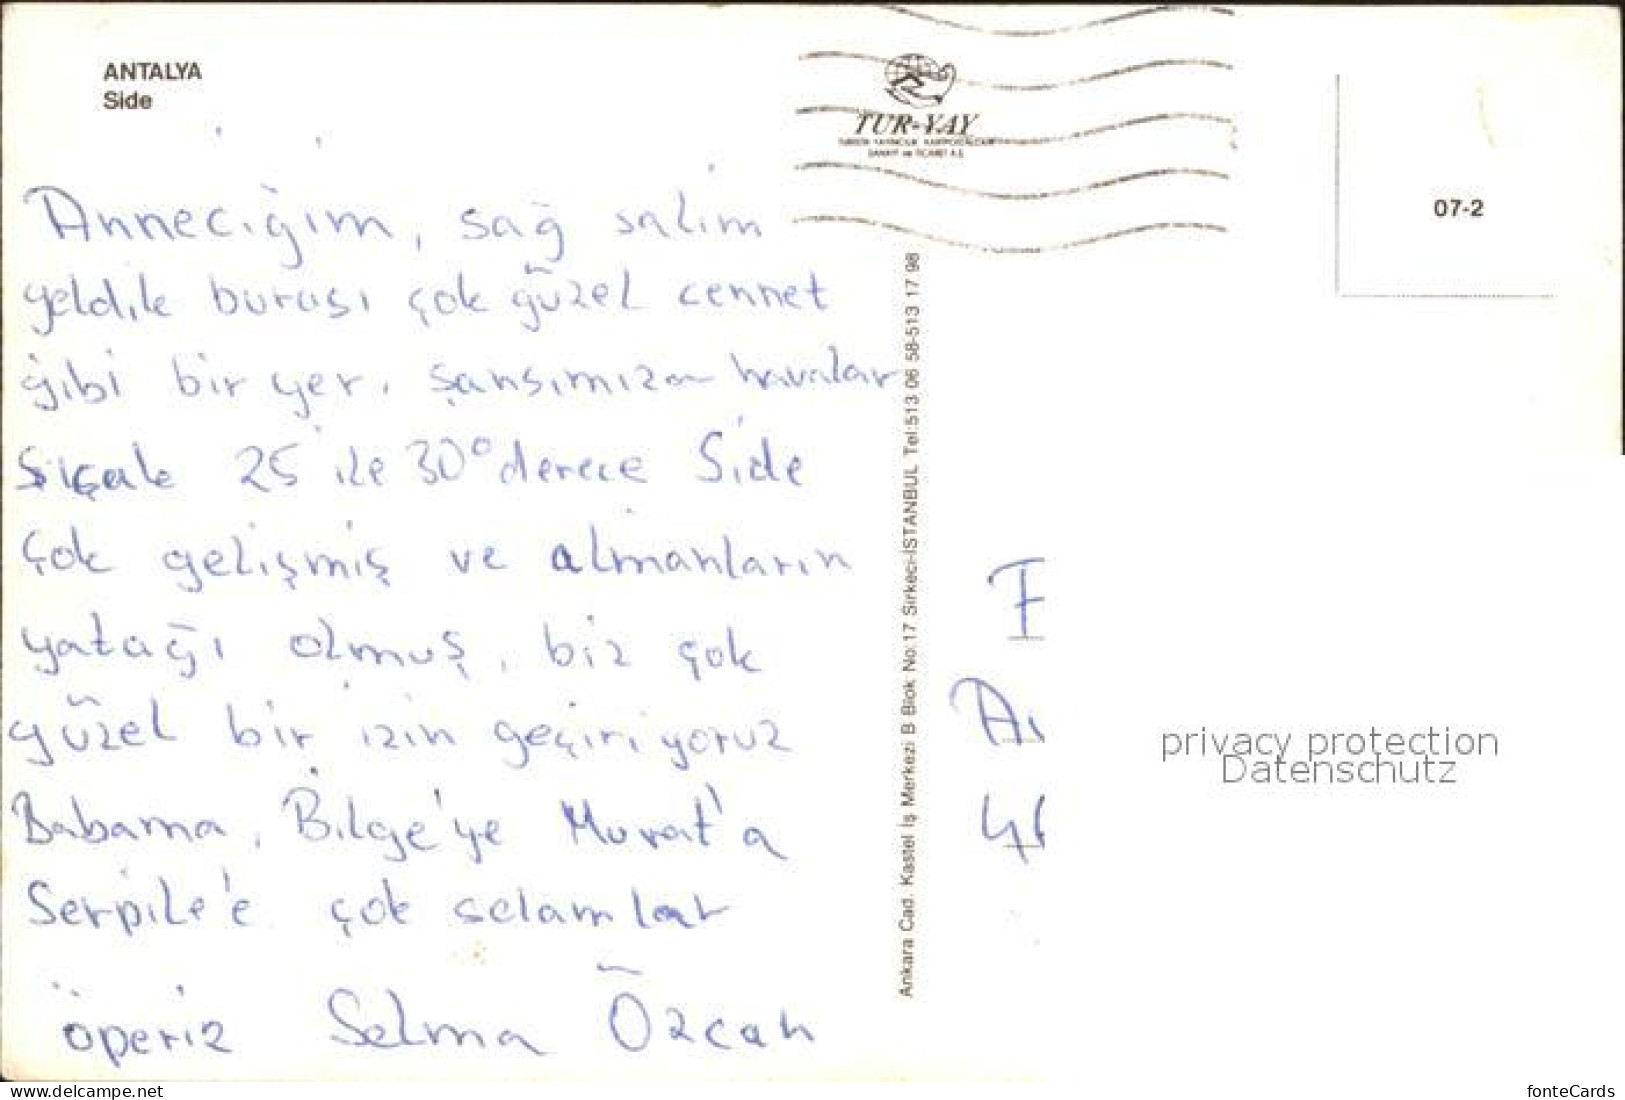 ANTALYA
Side
TUR-YAY
SANAYİ ve TİCARET A.Ş.
07-2
Anneciğim, sağ salim
geldik burası çok güzel cennet
gibi bir yer, şansımıza havalar
sıçak 25 ile 30° derece Side
çok gelişmiş ve almanların
yatağı olmuş, biz çok
güzel bir izin geçiriyoruz
Babama, Bilge'ye Murat'a
Serpile'e çok selamlar
öperiz Selma Özcan
Ankara Cad. Kastel İş Merkezi B Blok No:17 Sirkeci-İSTANBUL Tel:513 06 58-513 17 98
F
A
4
privacy protection
Datenschutz
www.delcampe.net
fonteCards